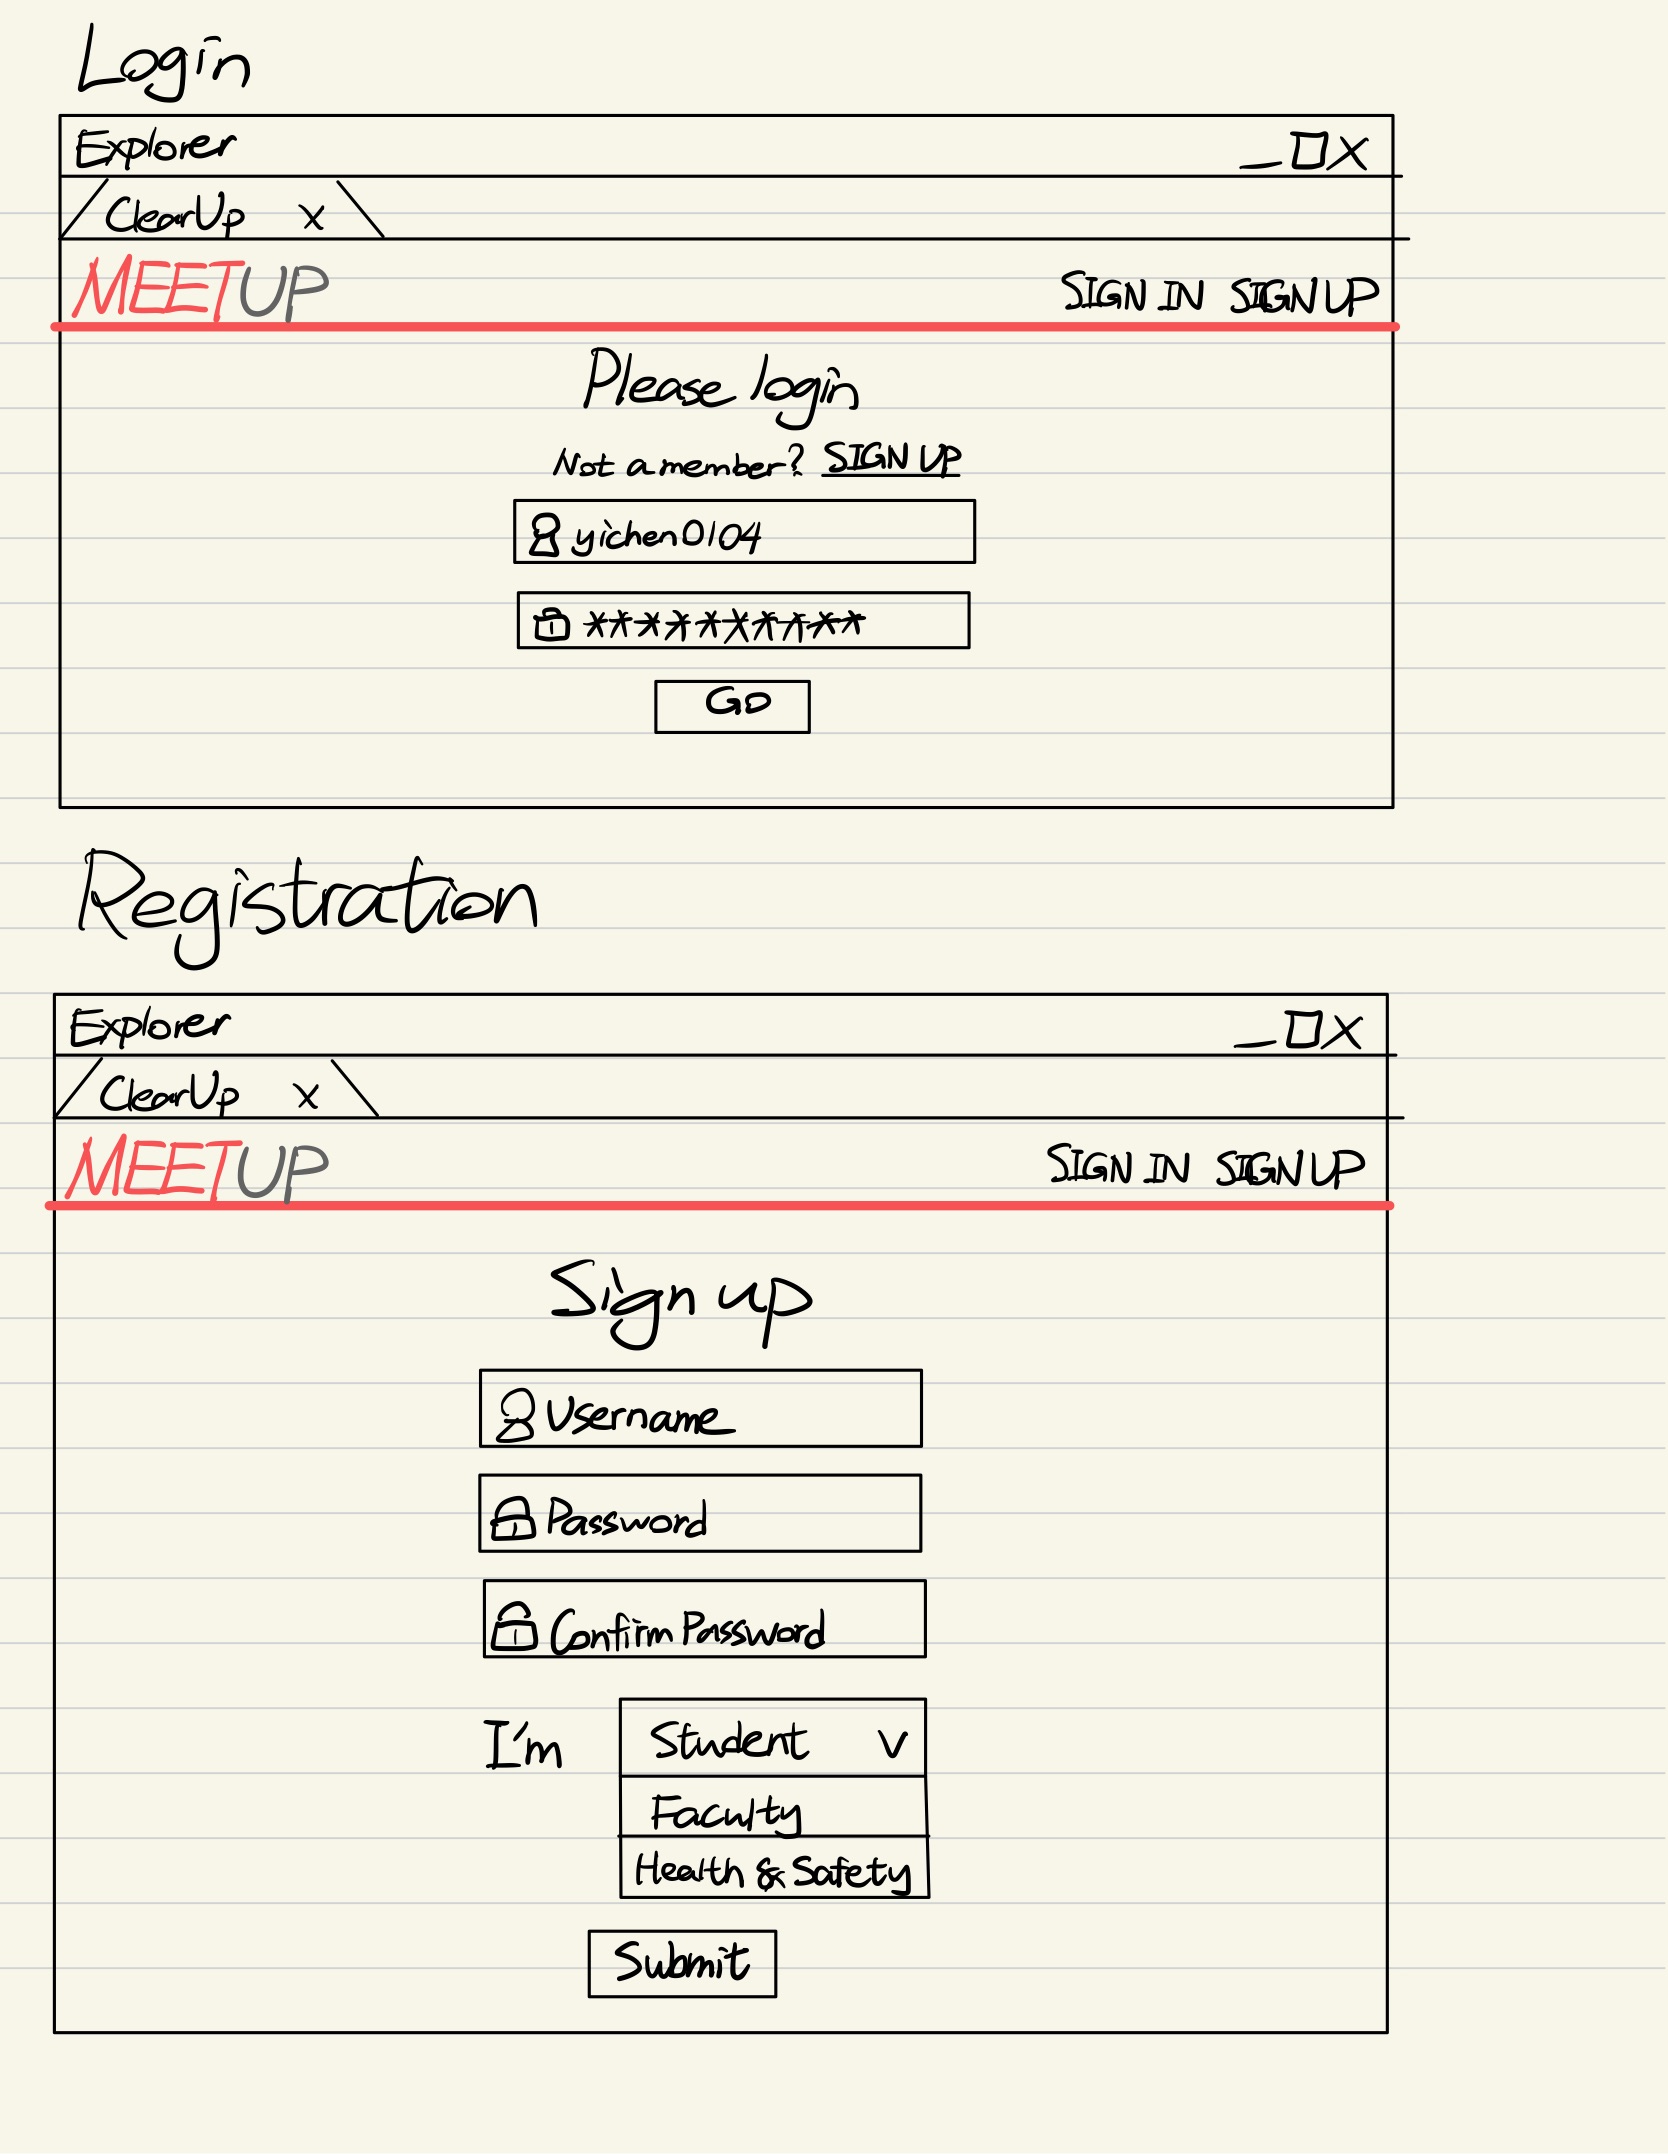 Login
Explorer _ □ X
ClearUp x
MEETUP SIGN IN SIGN UP
Please login
Not a member? SIGN UP
yichen0104
**********
GO
Registration
Explorer _ □ X
ClearUp x
MEETUP SIGN IN SIGN UP
Sign up
Username
Password
Confirm Password
I'm Student V
Faculty
Health & Safety
Submit